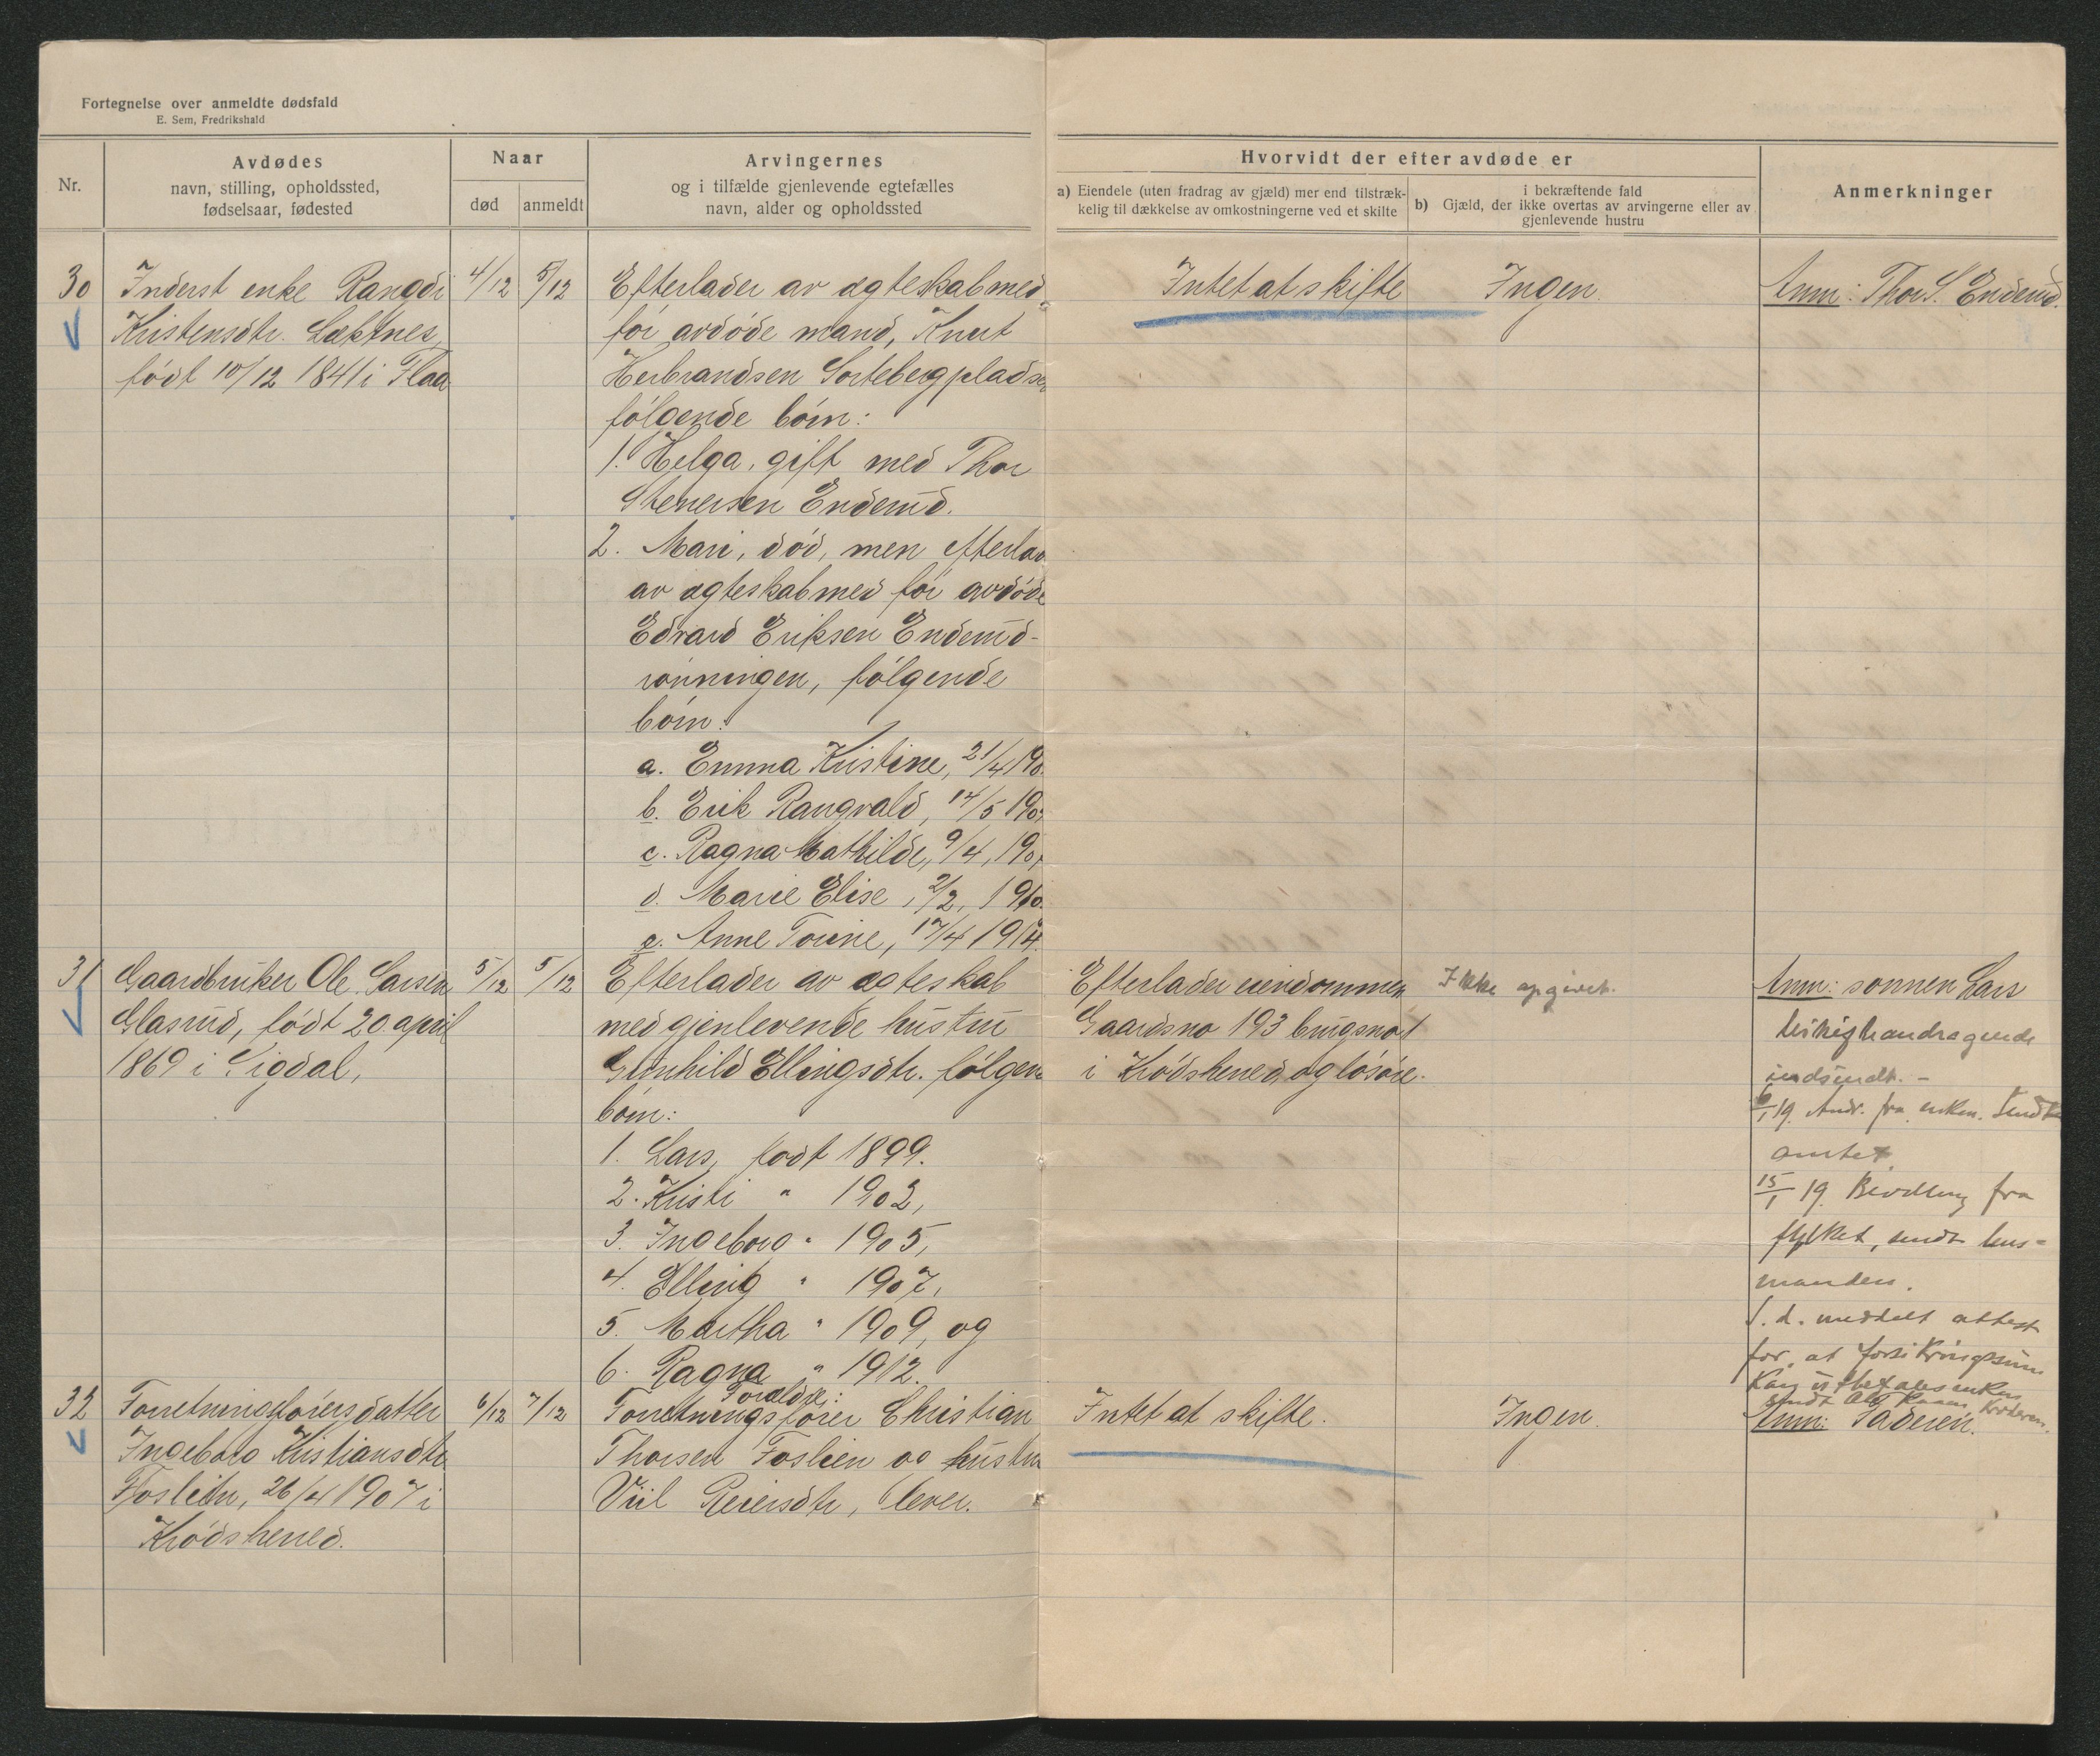 Fortegnelse over anmeldte dødsfald
E. Sem, Fredrikshald
Nr.
Avdødes
navn, stilling, opholdssted,
fødselsaar, fødested
Naar
død
anmeldt
Arvingernes
og i tilfælde gjenlevende egtefælles
navn, alder og opholdssted
Hvorvidt der efter avdøde er
a) Eiendele (uten fradrag av gjæld) mer end tilstræk-
kelig til dækkelse av omkostningerne ved et skifte
i bekræftende fald
b) Gjæld, der ikke overtas av arvingerne eller av
gjenlevende hustru
Anmerkninger
30
Inderst enke Rangdi
Kristensdtr. Læktnes,
født 10/12 1841 i Flaa
4/12
5/12
Efterlader av ægteskab med
før avdøde mand, Knut
Herbrandsen Sortebergpladsen
følgende børn:
1. Helga, gift med Thor
Stenersen Enderud.
2. Mari, død, men efterlad
av ægteskab med før avdøde
Edvard Eriksen Enderud-
rønningen, følgende
børn:
a. Emma Kristine, 21/4 190
b. Erik Rangvald, 14/5 190
c. Ragna Mathilde, 9/4, 190
d. Marie Elise, 2/2, 1910.
e. Anne Torine, 17/4 1914.
Intet at skifte
Ingen.
Anm: Thor S. Enderud.
31
Gaardbruker Ole Larsen
Glasrud, født 20 april
1869 i Sigdal,
5/12
5/12
Efterlader av ægteskab
med gjenlevende hustru
Gunhild Ellingsdtr. følgen
børn:
1. Lars, født 1899.
2. Kristi " 1902,
3. Ingeborg " 1905,
4. Elling " 1907,
5. Martha " 1909, og
6. Ragna " 1912.
Efterlader eiendommen
Gaardsno 193 brugsno 1
i Krødshered og løsøre.
Ikke opgivet.
Anm: sønnen Lars
indsendt. -
/1 19. Andr. fra enken. Sendt
amtet.
15/1 19. Bevilling fra
fylket, sendt lens-
manden.
S. d. meddelt attest
for, at forsikringssum
kan utbetales enken
sendt
32
Forretningsførersdatter
Ingeborg Kristiansdtr
Foslien, 26/4 1907 i
Krødshered.
6/12
7/12
Forældre:
Forretningsfører Christian
Thorsen Foslien og hustru
Viil Reiersdtr, lever.
Intet at skifte.
Ingen.
Anm: Faderen.